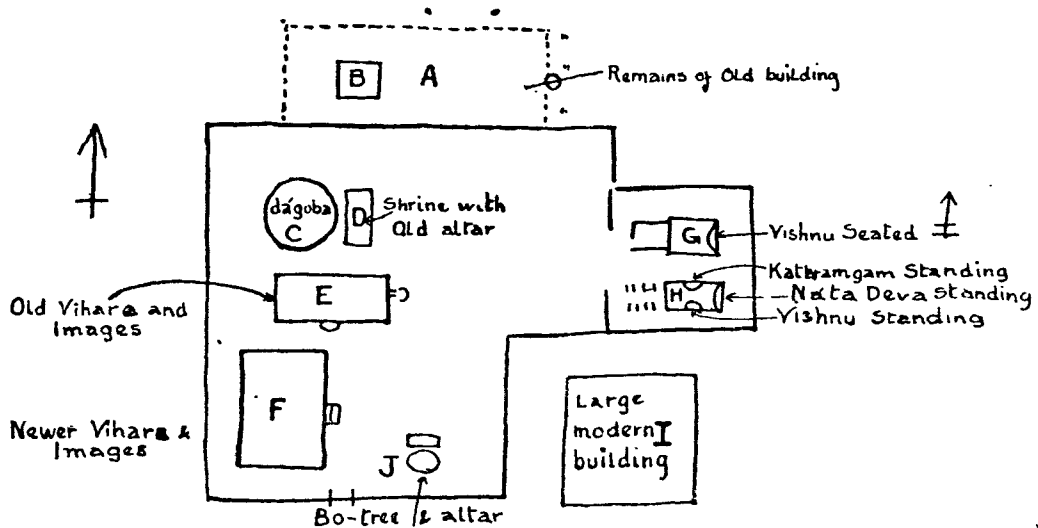 B
A
Remains of Old building
dágoba
C
D
Shrine with
Old altar
G
Vishnu Seated
Kathramgam Standing
H
Nata Deva Standing
Vishnu Standing
E
Old Vihara and
Images
F
Newer Vihara &
Images
J
Bo-tree & altar
Large
modern I
building